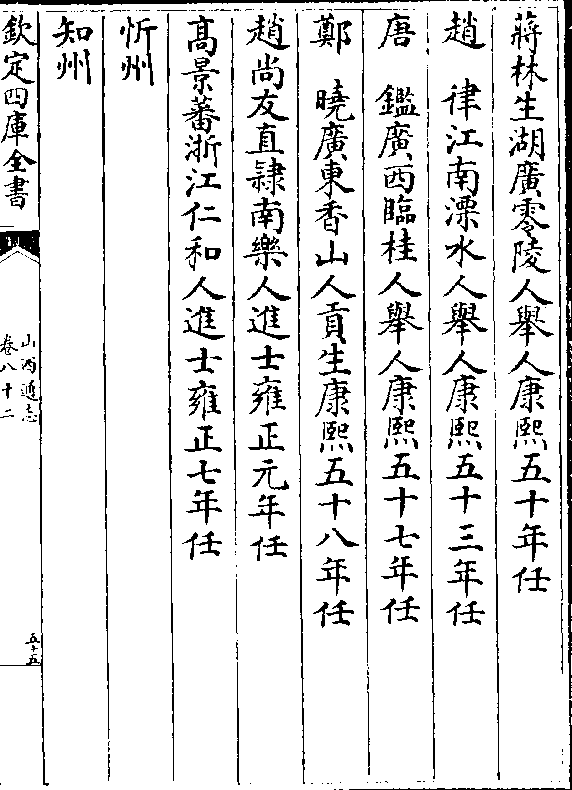 蔣林生湖廣零陵人舉人康熙五十年任
趙　律江南溧水人舉人康熙五十三年任
唐　鑑廣西臨桂人舉人康熙五十七年任
鄭　曉廣東香山人貢生康熙五十八年任
趙尚友直隷南樂人進士雍正元年任
髙景蕃浙江仁和人進士雍正七年任
忻州
知州
欽定四庫全書
山西通志
卷八十二
五十五